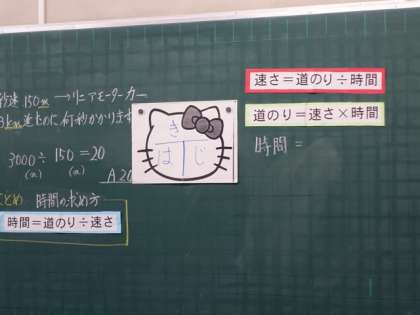 秒速150m→リニアモーターカー
3km進むのに何秒かかりますか
3000÷150=20
(m) (m)
A.20
まとめ 時間の求め方
時間=道のり÷速さ
き
は じ
速さ=道のり÷時間
道のり=速さ×時間
時間=